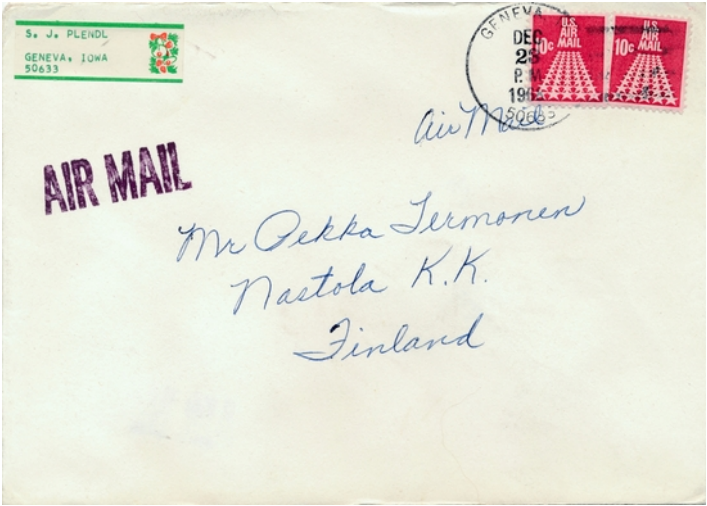 S. J. PLENDL
GENEVA, IOWA
50633
GENEVA
DEC
28
P.M
196
50633
U.S.
AIR
MAIL
10c
U.S.
AIR
MAIL
10c
Air Mail
AIR MAIL
Mr Pekka Termonen
Nastola K.K.
Finland